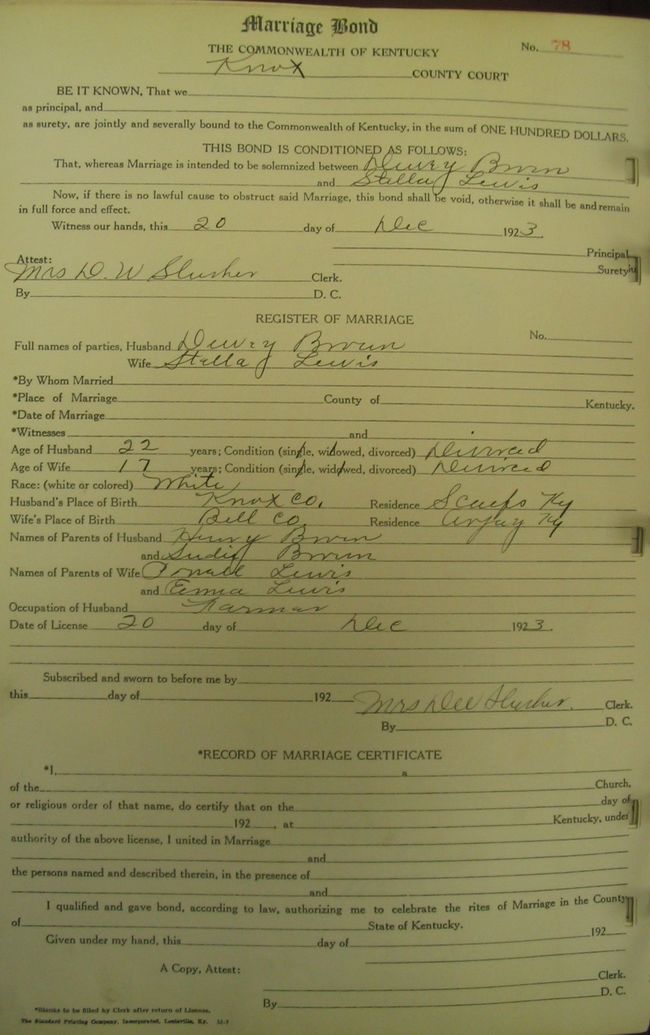 Marriage Bond
THE COMMONWEALTH OF KENTUCKY
No. 78
Knox COUNTY COURT
BE IT KNOWN, That we
as principal, and
as surety, are jointly and severally bound to the Commonwealth of Kentucky, in the sum of ONE HUNDRED DOLLARS.
THIS BOND IS CONDITIONED AS FOLLOWS:
That, whereas Marriage is intended to be solemnized between Dewey Brown
and Stella Lewis
Now, if there is no lawful cause to obstruct said Marriage, this bond shall be void, otherwise it shall be and remain
in full force and effect.
Witness our hands, this 20 day of Dec 1923
Principal
Attest:
Surety
Mrs D. W Slusher Clerk.
By D. C.
REGISTER OF MARRIAGE
No.
Full names of parties, Husband Dewey Brown
Wife Stella Lewis
*By Whom Married
*Place of Marriage County of Kentucky.
*Date of Marriage
*Witnesses and
Age of Husband 22 years; Condition (single, widowed, divorced) Divorced
Age of Wife 17 years; Condition (single, widowed, divorced) Divorced
Race: (white or colored) White
Husband's Place of Birth Knox Co. Residence Scalfs Ky
Wife's Place of Birth Bell Co. Residence Arjay Ky
Names of Parents of Husband Henry Brown
and Brown
Names of Parents of Wife Lewis
and Emma Lewis
Occupation of Husband Farmer
Date of License 20 day of Dec 1923.
Subscribed and sworn to before me by
this day of 192
Mrs Slusher. Clerk.
By D. C.
*RECORD OF MARRIAGE CERTIFICATE
*I, a
of the Church,
or religious order of that name, do certify that on the day of
192 , at Kentucky, under
authority of the above license, I united in Marriage
and
the persons named and described therein, in the presence of
and
I qualified and gave bond, according to law, authorizing me to celebrate the rites of Marriage in the County
of State of Kentucky.
Given under my hand, this day of 192
A Copy, Attest:
Clerk.
By D. C.
*Blanks to be filled by Clerk after return of License.
The Standard Printing Company, Incorporated, Louisville, Ky.